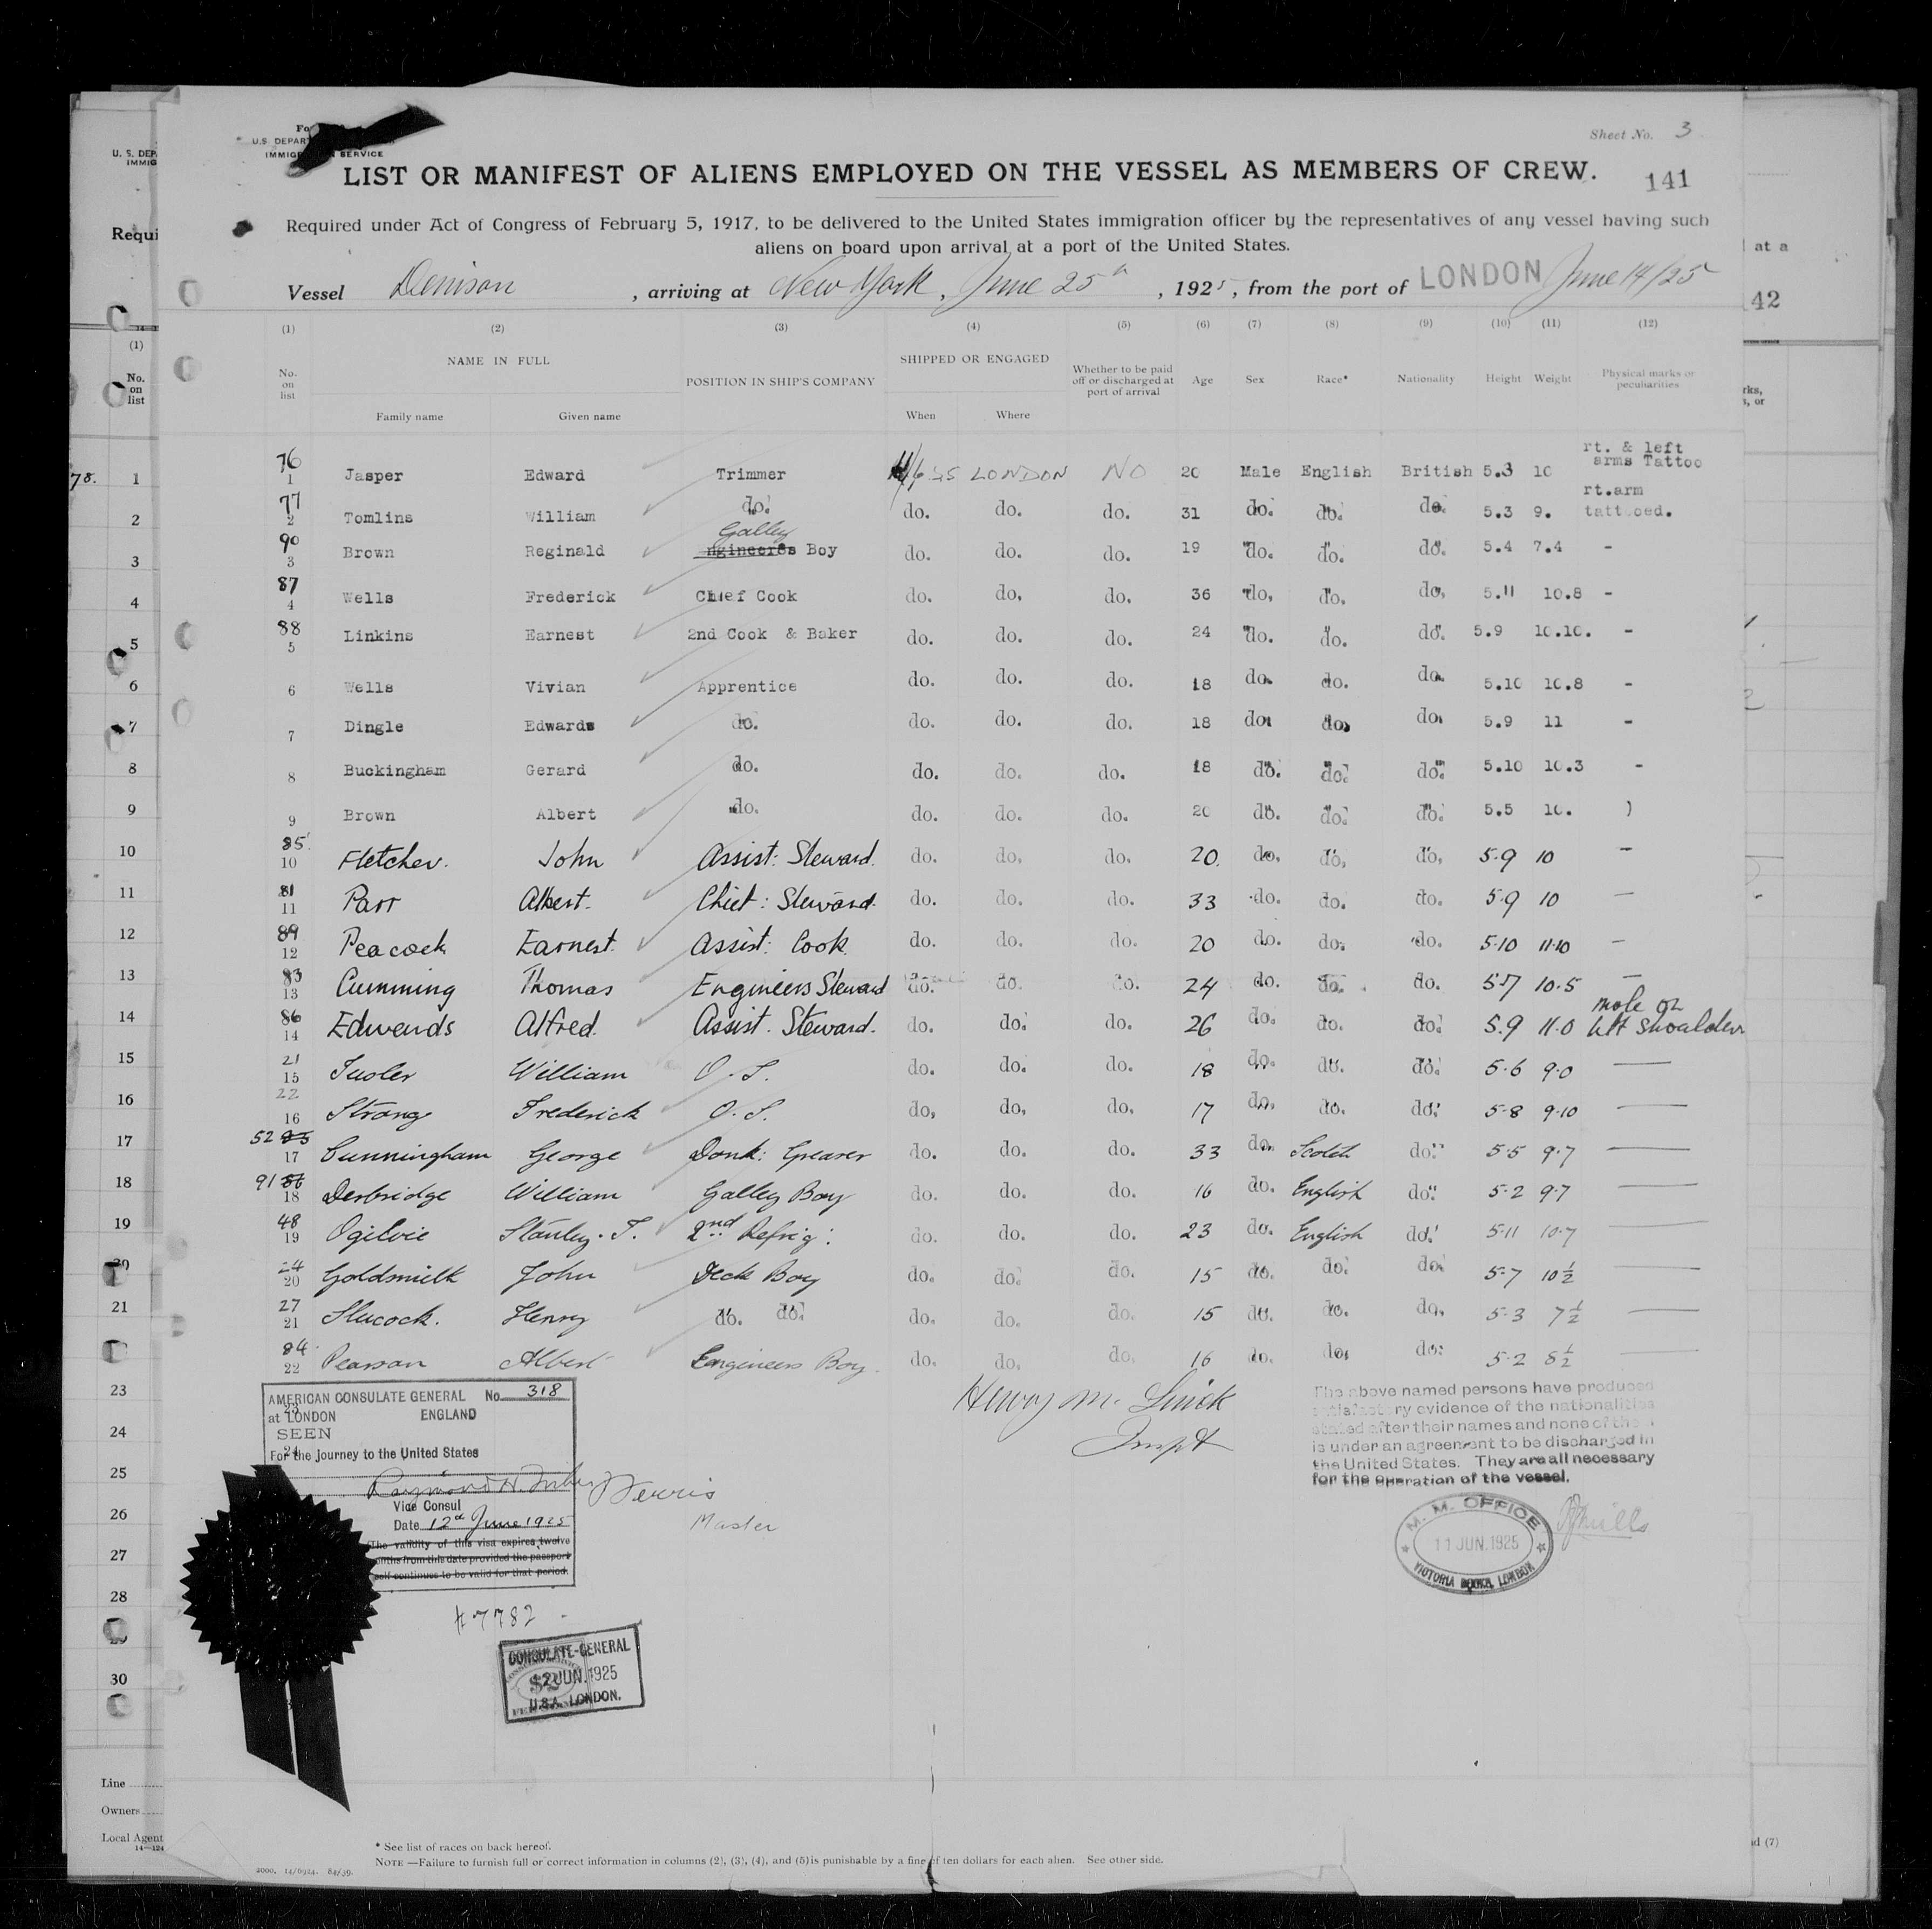 Sheet No. 3
U.S. DEPAR
IMMIG SERVICE
U. S. DEP
IMMIG
LIST OR MANIFEST OF ALIENS EMPLOYED ON THE VESSEL AS MEMBERS OF CREW.
141
Requi
Required under Act of Congress of February 5, 1917, to be delivered to the United States immigration officer by the representatives of any vessel having such
aliens on board upon arrival at a port of the United States.
at a
Vessel Denison, arriving at New York, June 25th, 1925, from the port of LONDON June 14/25
42
(1) (2) (3) (4) (5) (6) (7) (8) (9) (10) (11) (12)
No. on list NAME IN FULL POSITION IN SHIP'S COMPANY SHIPPED OR ENGAGED Whether to be paid off or discharged at port of arrival Age Sex Race* Nationality Height Weight Physical marks or peculiarities
Family name Given name When Where
76 1 Jasper Edward Trimmer LONDON NO 20 Male English British 5.3 10 rt. & left arms Tattoo
77 2 Tomlins William do. do. do. do. 31 do. do. do. 5.3 9. rt.arm tattooed.
90 3 Brown Reginald Galley ngineers Boy do. do. do. 19 do. do. do. 5.4 7.4 -
87 4 Wells Frederick Chief Cook do. do. do. 36 do. do. do. 5.11 10.8 -
88 5 Linkins Earnest 2nd Cook & Baker do. do. do. 24 do. do. do. 5.9 10.10. -
6 Wells Vivian Apprentice do. do. do. 18 do. do. do. 5.10 10.8 -
7 Dingle Edwards do. do. do. do. 18 do. do. do. 5.9 11 -
8 Buckingham Gerard do. do. do. do. 18 do. do. do. 5.10 10.3 -
9 Brown Albert do. do. do. do. 20 do. do. do. 5.5 10. )
85 10 Fletcher. John Assist: Steward. do. do. do. 20. do. do. do. 5.9 10 -
81 11 Parr Albert. Chief: Steward. do. do. do. 33 do. do. do. 5.9 10 -
89 12 Peacock Earnest. Assist: Cook. do. do. do. 20 do. do. do. 5.10 11.10 -
83 13 Cumming Thomas Engineers Steward do. do. do. 24 do. do. do. 5.7 10.5 -
86 14 Edwards Alfred. Assist. Steward. do. do. do. 26 do. do. do. 5.9 11.0 mole on left shoulder
21 15 William O.S. do. do. do. 18 do. do. do. 5.6 9.0 —
22 16 Strong Frederick O.S. do. do. do. 17 do. do. do. 5.8 9.10 —
52 17 Cunningham George Donk: Greaser do. do. do. 33 do. Scotch do. 5.5 9.7 —
91 18 Derbridge William Galley Boy do. do. do. 16 do. English do. 5.2 9.7 —
48 19 Ogilvie Stanley. T. 2nd Refrig: do. do. do. 23 do. English do. 5.11 10.7 —
24 20 John Deck Boy do. do. do. 15 do. do. do. 5.7 10½ —
27 21 Slucock. Henry do. do. do. do. do. 15 do. do. do. 5.3 7½ —
84 22 Pearson Albert Engineers Boy. do. do. do. 16 do. do. do. 5.2 8½ —
AMERICAN CONSULATE GENERAL No. 318
at LONDON ENGLAND
SEEN
For the Journey to the United States
Vice Consul
Date 12th June 1925
The validity of this visa expires twelve
months from this date provided the passport
self continues to be valid for that period.
Master
Inspt
The above named persons have produced
satisfactory evidence of the nationalities
stated after their names and none of them
is under an agreement to be discharged in
the United States. They are all necessary
for the operation of the vessel.
M. M. OFFICE
11 JUN.1925
VICTORIA LONDON
#7782
CONSULATE-GENERAL
12 JUN.1925
U.S.A. LONDON.
Line
Owners
Local Agent
* See list of races on back hereof.
NOTE —Failure to furnish full or correct information in columns (2), (3), (4), and (5) is punishable by a fine of ten dollars for each alien. See other side.
2000. 14/6924. 84/39.